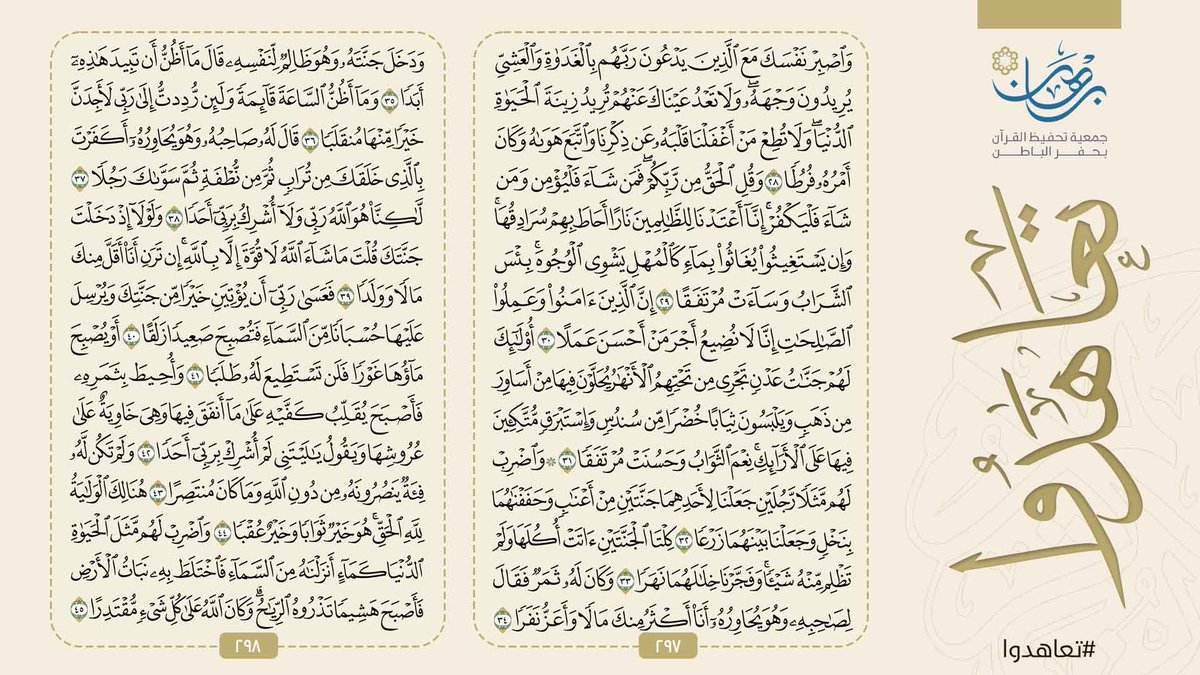 برهان
جمعية تحفيظ القرآن
بحفر الباطن
تعاهدوا
#تعاهدوا
وَٱصۡبِرۡ نَفۡسَكَ مَعَ ٱلَّذِينَ يَدۡعُونَ رَبَّهُم بِٱلۡغَدَوٰةِ وَٱلۡعَشِيِّ
يُرِيدُونَ وَجۡهَهُۥۖ وَلَا تَعۡدُ عَيۡنَاكَ عَنۡهُمۡ تُرِيدُ زِينَةَ ٱلۡحَيَوٰةِ
ٱلدُّنۡيَاۖ وَلَا تُطِعۡ مَنۡ أَغۡفَلۡنَا قَلۡبَهُۥ عَن ذِكۡرِنَا وَٱتَّبَعَ هَوَىٰهُ وَكَانَ
أَمۡرُهُۥ فُرُطٗا ٢٨ وَقُلِ ٱلۡحَقُّ مِن رَّبِّكُمۡۖ فَمَن شَآءَ فَلۡيُؤۡمِن وَمَن
شَآءَ فَلۡيَكۡفُرۡۚ إِنَّآ أَعۡتَدۡنَا لِلظَّٰلِمِينَ نَارًا أَحَاطَ بِهِمۡ سُرَادِقُهَاۚ
وَإِن يَسۡتَغِيثُواْ يُغَاثُواْ بِمَآءٖ كَٱلۡمُهۡلِ يَشۡوِي ٱلۡوُجُوهَۚ بِئۡسَ
ٱلشَّرَابُ وَسَآءَتۡ مُرۡتَفَقًا ٢٩ إِنَّ ٱلَّذِينَ ءَامَنُواْ وَعَمِلُواْ
ٱلصَّٰلِحَٰتِ إِنَّا لَا نُضِيعُ أَجۡرَ مَنۡ أَحۡسَنَ عَمَلًا ٣٠ أُوْلَٰٓئِكَ
لَهُمۡ جَنَّٰتُ عَدۡنٖ تَجۡرِي مِن تَحۡتِهِمُ ٱلۡأَنۡهَٰرُ يُحَلَّوۡنَ فِيهَا مِنۡ أَسَاوِرَ
مِن ذَهَبٖ وَيَلۡبَسُونَ ثِيَابًا خُضۡرٗا مِّن سُندُسٖ وَإِسۡتَبۡرَقٖ مُّتَّكِـِٔينَ
فِيهَا عَلَى ٱلۡأَرَآئِكِۚ نِعۡمَ ٱلثَّوَابُ وَحَسُنَتۡ مُرۡتَفَقٗا ٣١ ۞ وَٱضۡرِبۡ
لَهُم مَّثَلٗا رَّجُلَيۡنِ جَعَلۡنَا لِأَحَدِهِمَا جَنَّتَيۡنِ مِنۡ أَعۡنَٰبٖ وَحَفَفۡنَٰهُمَا
بِنَخۡلٖ وَجَعَلۡنَا بَيۡنَهُمَا زَرۡعٗا ٣٢ كِلۡتَا ٱلۡجَنَّتَيۡنِ ءَاتَتۡ أُكُلَهَا وَلَمۡ
تَظۡلِم مِّنۡهُ شَيۡـٔٗاۚ وَفَجَّرۡنَا خِلَٰلَهُمَا نَهَرٗا ٣٣ وَكَانَ لَهُۥ ثَمَرٞ فَقَالَ
لِصَٰحِبِهِۦ وَهُوَ يُحَاوِرُهُۥٓ أَنَا۠ أَكۡثَرُ مِنكَ مَالٗا وَأَعَزُّ نَفَرٗا ٣٤
٢٩٧
وَدَخَلَ جَنَّتَهُۥ وَهُوَ ظَالِمٞ لِّنَفۡسِهِۦ قَالَ مَآ أَظُنُّ أَن تَبِيدَ هَٰذِهِۦٓ
أَبَدٗا ٣٥ وَمَآ أَظُنُّ ٱلسَّاعَةَ قَآئِمَةٗ وَلَئِن رُّدِدتُّ إِلَىٰ رَبِّي لَأَجِدَنَّ
خَيۡرٗا مِّنۡهَا مُنقَلَبٗا ٣٦ قَالَ لَهُۥ صَاحِبُهُۥ وَهُوَ يُحَاوِرُهُۥٓ أَكَفَرۡتَ
بِٱلَّذِي خَلَقَكَ مِن تُرَابٖ ثُمَّ مِن نُّطۡفَةٖ ثُمَّ سَوَّىٰكَ رَجُلٗا ٣٧
لَّٰكِنَّا۠ هُوَ ٱللَّهُ رَبِّي وَلَآ أُشۡرِكُ بِرَبِّيٓ أَحَدٗا ٣٨ وَلَوۡلَآ إِذۡ دَخَلۡتَ
جَنَّتَكَ قُلۡتَ مَا شَآءَ ٱللَّهُ لَا قُوَّةَ إِلَّا بِٱللَّهِۚ إِن تَرَنِ أَنَا۠ أَقَلَّ مِنكَ
مَالٗا وَوَلَدٗا ٣٩ فَعَسَىٰ رَبِّيٓ أَن يُؤۡتِيَنِ خَيۡرٗا مِّن جَنَّتِكَ وَيُرۡسِلَ
عَلَيۡهَا حُسۡبَانٗا مِّنَ ٱلسَّمَآءِ فَتُصۡبِحَ صَعِيدٗا زَلَقًا ٤٠ أَوۡ يُصۡبِحَ
مَآؤُهَا غَوۡرٗا فَلَن تَسۡتَطِيعَ لَهُۥ طَلَبٗا ٤١ وَأُحِيطَ بِثَمَرِهِۦ
فَأَصۡبَحَ يُقَلِّبُ كَفَّيۡهِ عَلَىٰ مَآ أَنفَقَ فِيهَا وَهِيَ خَاوِيَةٌ عَلَىٰ
عُرُوشِهَا وَيَقُولُ يَٰلَيۡتَنِي لَمۡ أُشۡرِكۡ بِرَبِّيٓ أَحَدٗا ٤٢ وَلَمۡ تَكُن لَّهُۥ
فِئَةٞ يَنصُرُونَهُۥ مِن دُونِ ٱللَّهِ وَمَا كَانَ مُنتَصِرًا ٤٣ هُنَالِكَ ٱلۡوَلَٰيَةُ
لِلَّهِ ٱلۡحَقِّۚ هُوَ خَيۡرٞ ثَوَابٗا وَخَيۡرٌ عُقۡبٗا ٤٤ وَٱضۡرِبۡ لَهُم مَّثَلَ ٱلۡحَيَوٰةِ
ٱلدُّنۡيَا كَمَآءٍ أَنزَلۡنَٰهُ مِنَ ٱلسَّمَآءِ فَٱخۡتَلَطَ بِهِۦ نَبَاتُ ٱلۡأَرۡضِ
فَأَصۡبَحَ هَشِيمٗا تَذۡرُوهُ ٱلرِّيَٰحُۗ وَكَانَ ٱللَّهُ عَلَىٰ كُلِّ شَيۡءٖ مُّقۡتَدِرًا ٤٥
٢٩٨